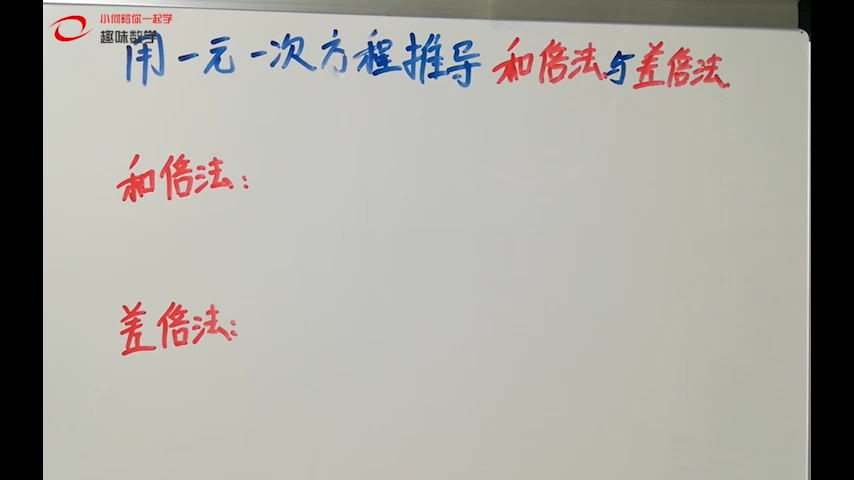 小何陪你一起学
趣味数学
用一元一次方程推导和倍法与差倍法
和倍法:
差倍法: